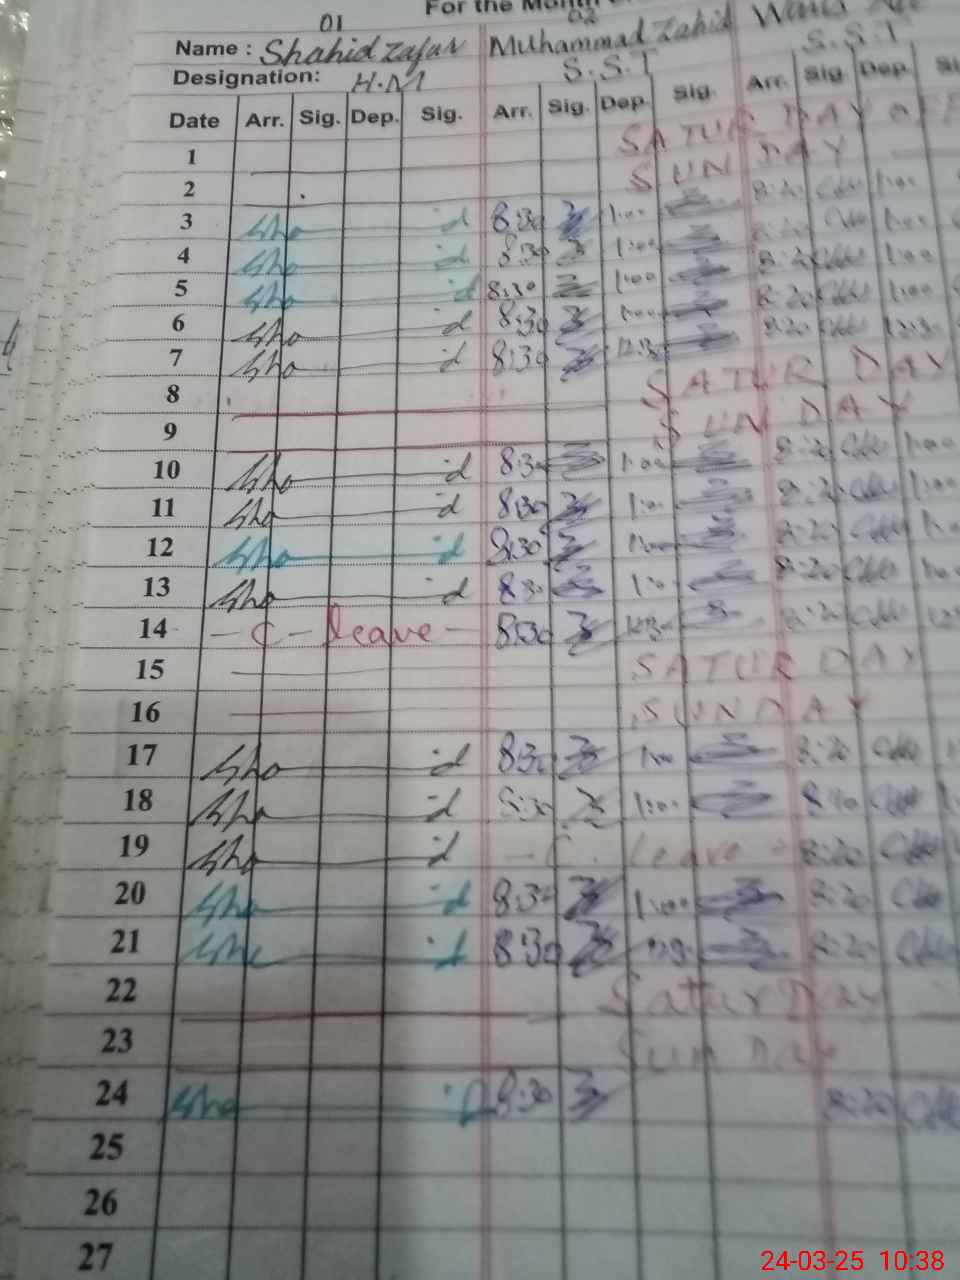 For the Month
01 02
Name : Shahid Zafar Muhammad Zahid
Designation: H.M S.S.T S.S.T
Date Arr. Sig. Dep. Sig. Arr. Sig. Dep. Sig. Arr. Sig. Dep.
1 SATUR DAY OFF
2 SUN DAY
3 Sha id 8:30 1:00 8:20 1:00
4 Sha id 8:30 1:00 8:20 1:00
5 Sha id 8:30 1:00 8:20 1:00
6 Sha id 8:30 1:00 8:20 1:00
7 Sha id 8:30 12:30 8:20 12:30
8 SATUR DAY
9 SUN DAY
10 Sha id 8:30 1:00 8:20 1:00
11 Sha id 8:30 1:00 8:20 1:00
12 Sha id 8:30 1:00 8:20
13 Sha id 8:30 1:00 8:20
14 - C - leave - 8:30 8:20
15 SATUR DAY
16 SUNDAY
17 Sha id 8:30 1:00 8:20
18 Sha id 8:30 1:00
19 Sha id - C. leave - 8:20
20 Sha id 8:30 1:00 8:20
21 Sha id 8:30 8:20
22 Satur Day
23 Sun Day
24 Sha id 8:30 8:20
25
26
27
24-03-25 10:38